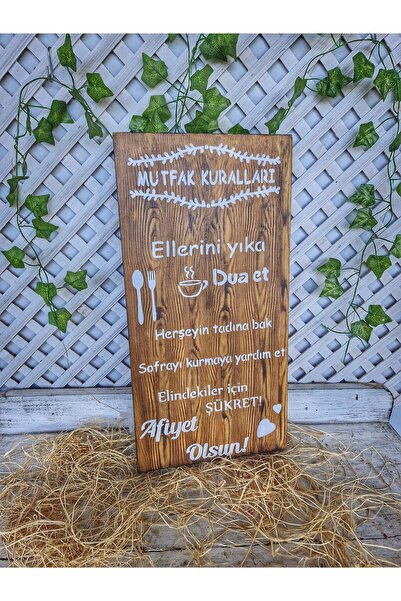 MUTFAK KURALLARI
Ellerini yıka
Dua et
Herşeyin tadına bak
Sofrayı kurmaya yardım et
Elindekiler için
ŞÜKRET!
Afiyet
Olsun!